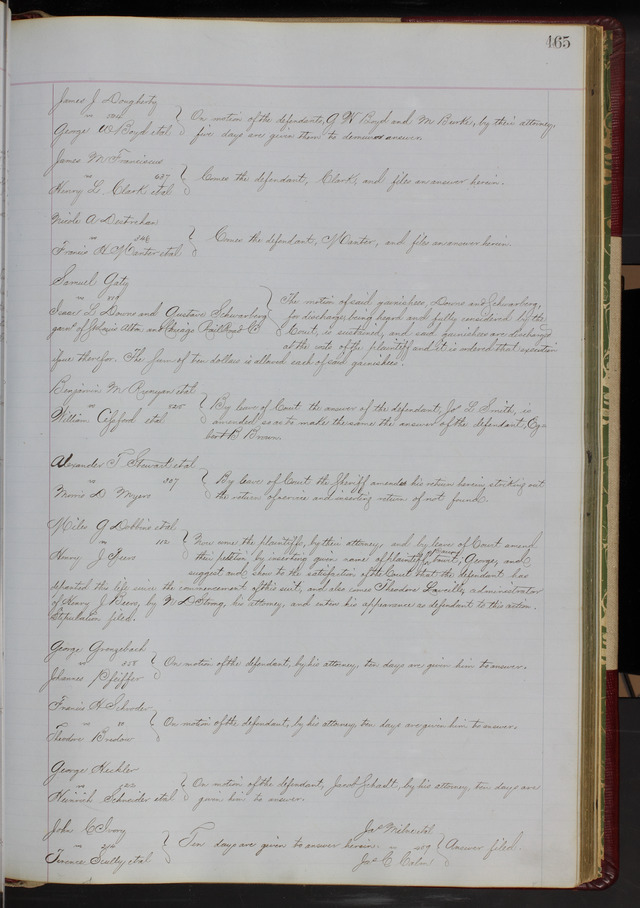 465
James J Dougherty
vs
George W Boyd et al
On motion of the defendants, G W Boyd and M Burke, by their attorney,
five days are given them to demur or answer.
James M Franciscus
vs 627
Henry L. Clark et al
Comes the defendant, Clark, and files an answer herein.
Nicole A
vs
Francis H Manter et al
Comes the defendant, Manter, and files an answer herein.
Samuel Gaty
vs
Isaac L Downs and Gustave Schwarberg
garn'd of St Louis Alton and Chicago Rail Road Co
The motion of said garnishees, Downs and Schwarberg,
for discharge, being heard and fully considered by the
Court, is sustained, and said garnishees are discharged
at the costs of the plaintiff and it is ordered that execution
issue therefor. The sum of ten dollars is allowed each of said garnishees.
Benjamin M Runyan et al
vs 525
William et al
By leave of Court the answer of the defendant, Jas L. Smith, is
amended so as to make the same the answer of the defendant,
B Brown.
Alexander T Stewart et al
vs 307
Morris D Myers
By leave of Court the Sheriff amends his return herein, striking out
the return of service and inserting return of not found.
Miles G Dobbins et al
vs 112
Henry J Beers
Now come the plaintiffs, by their attorney, and by leave of Court amend
their petition by inserting given name of plaintiff George, and
suggest and show to the satisfaction of the Court that the defendant has
departed this life since the commencement of this suit, and also comes Theodore administrator
of Henry J. Beers, by N D Strong, his attorney, and enters his appearance as defendant to this action.
Stipulation filed.
George
vs 558
Johannes Pfeiffer
On motion of the defendant, by his attorney, ten days are given him to answer.
Francis H Schroder
vs
Theodore
On motion of the defendant, by his attorney, ten days are given him to answer.
George Kechler
vs
Heinrich Schneider et al
On motion of the defendant, Jacob Schadt, by his attorney, ten days are
given him to answer.
John C Ivory
vs
Terence Scully et al
Ten days are given to answer herein.
Jas Milne et al
vs 459
Jno C
Answer filed.